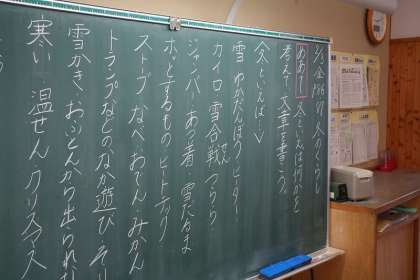 冬のくらし
めあて 冬といえば何かを
考えて、文章を書こう。
〈冬といえば〉
雪 ゆたんぽ ヒーター
カイロ 雪合戦 つらら
ジャンパー あつ着 雪だるま
ホッとするもの ヒートテック
ストーブ なべ おでん みかん
トランプなどのなか遊び そり
雪かき おふとんから出られな
寒い 温せん クリスマス